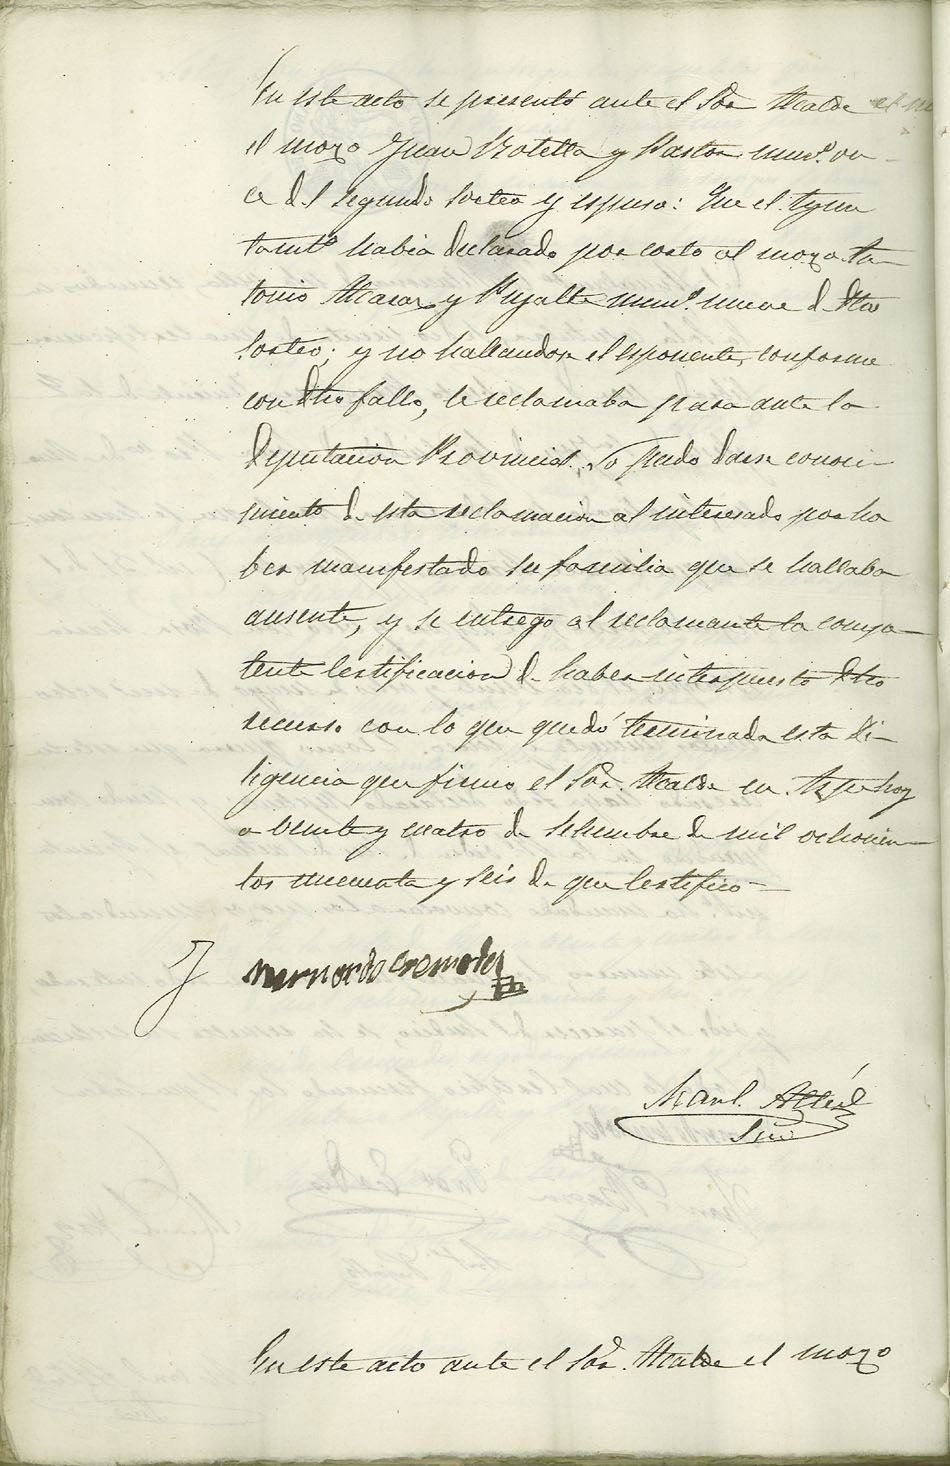 En este acto se presentó ante el Sor. Alcalde
el mozo Juan Botella y Pastor numo. on
ce del segundo sorteo y espuso: Que el Ayun
tamto. habia declarado por corto al mozo An
tonio Alcaraz y Pujalte numo. nueve de dho
sorteo; y no hallandose el esponente, conforme
con dho fallo, le reclamaba para ante la
Diputacion Provincial. No pudo darse conoci-
miento de esta reclamacion al interesado por ha
ber manifestado su familia que se hallaba
ausente, y se entrego al reclamante la compe-
tente certificacion de haber interpuesto dho
recurso con lo que quedó terminada esta di-
ligencia que firmo el Sor. Alcalde en Aspe hoy
a veinte y cuatro de Setiembre de mil ochocien-
tos cincuenta y seis de que certifico-
Bernardo Cremades
Manl.
Srio
En este acto ante el Sor. Alcalde el mozo